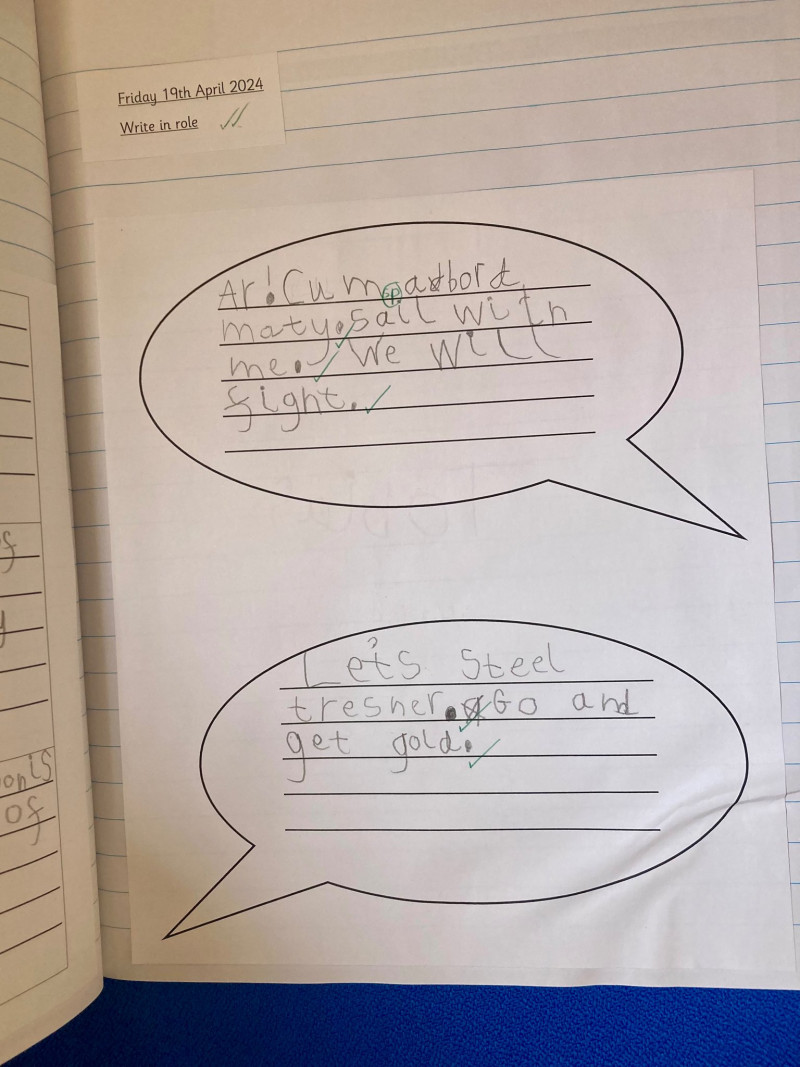 Friday 19th April 2024
Write in role
Ar! Cum abord
maty. Sail with
me. We will
fight.
Let's Steel
tresher. Go and
get gold.
of
y
onis
of